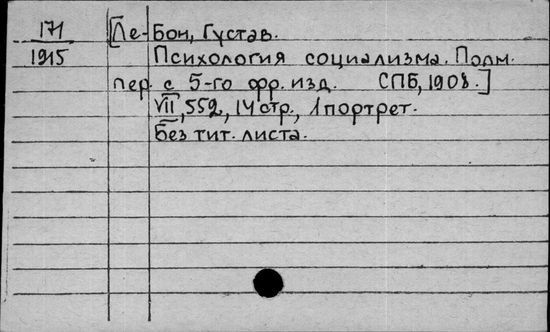 171 [Ле-Бон, Густав.
1915 Психология социализма. Полн.
пер. с 5-го фр. изд. СПБ, 1908.]
VII, 552, 14 стр., 1 портрет.
Без тит. листа.